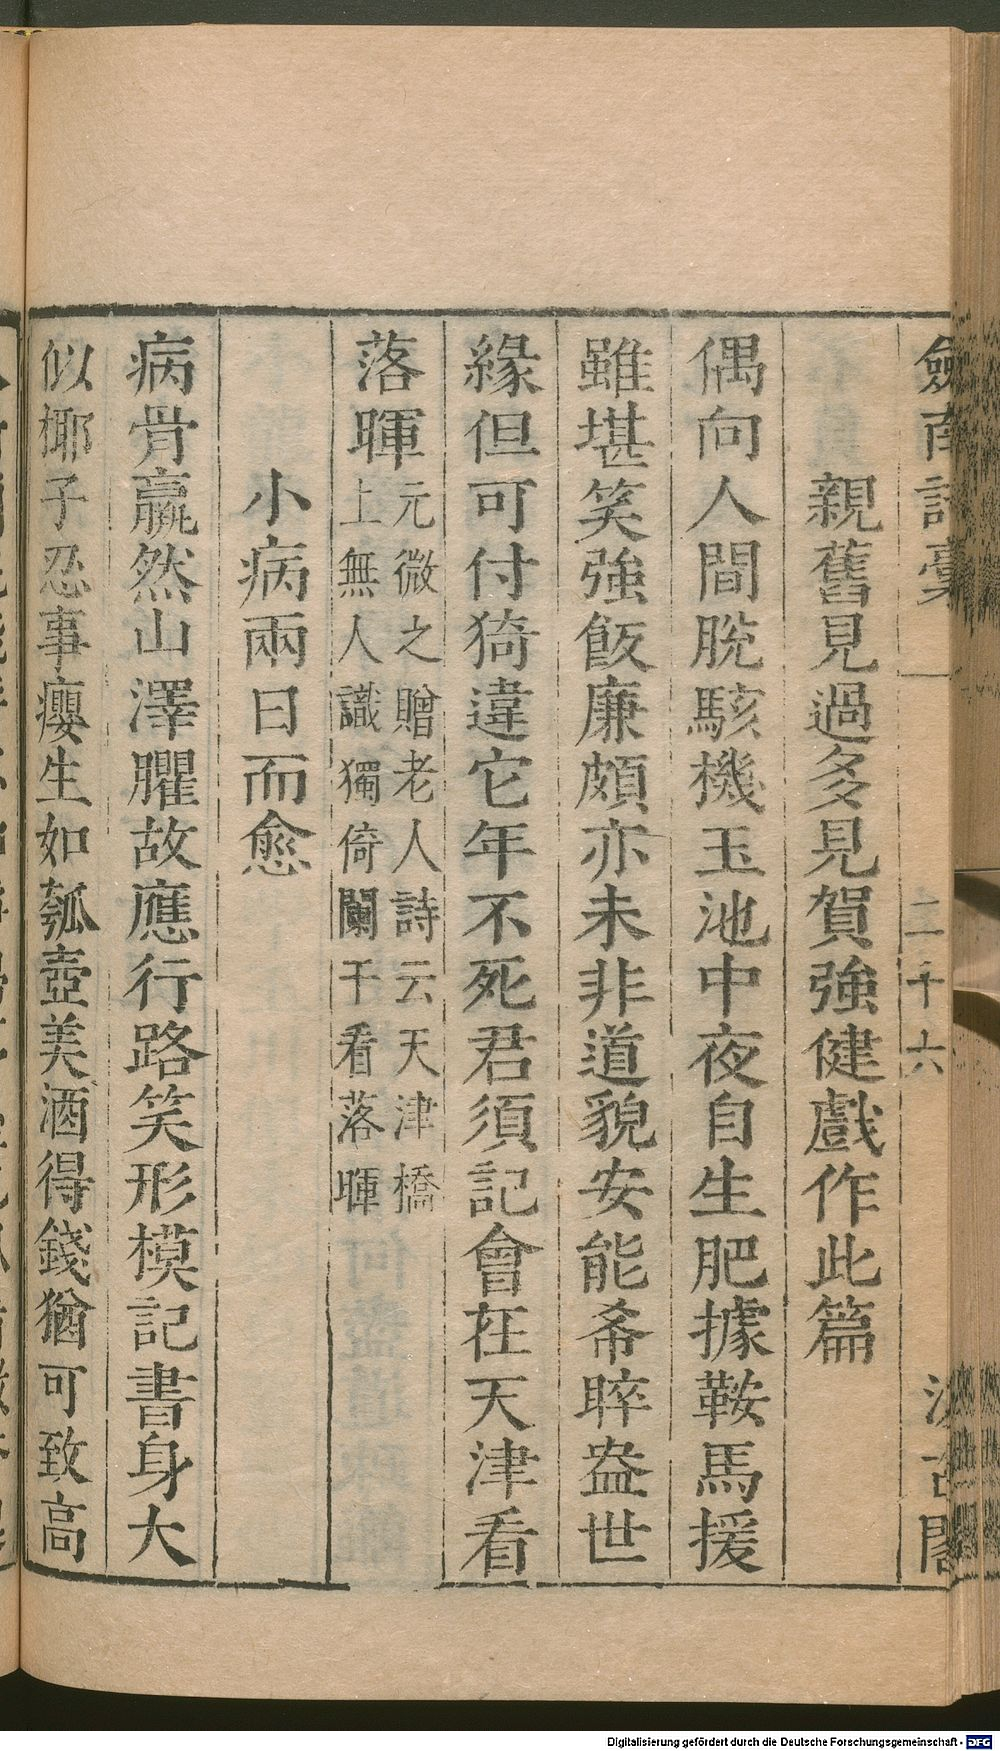 劍南詩稾 二千六 汲古閣
親舊見過多見賀強健戲作此篇
偶向人間脫駭機玉池中夜自生肥據鞍馬援
雖堪笑強飯廉頗亦未非道貌安能希睟盎世
緣但可付猗違它年不死君須記會在天津看
落暉
元微之贈老人詩云天津橋
上無人識獨倚闌干看落暉
小病兩日而愈
病骨羸然山澤臞故應行路笑形模記書身大
似椰子忍事癭生如瓠壺美酒得錢猶可致高
Digitalisierung gefördert durch die Deutsche Forschungsgemeinschaft - DFG